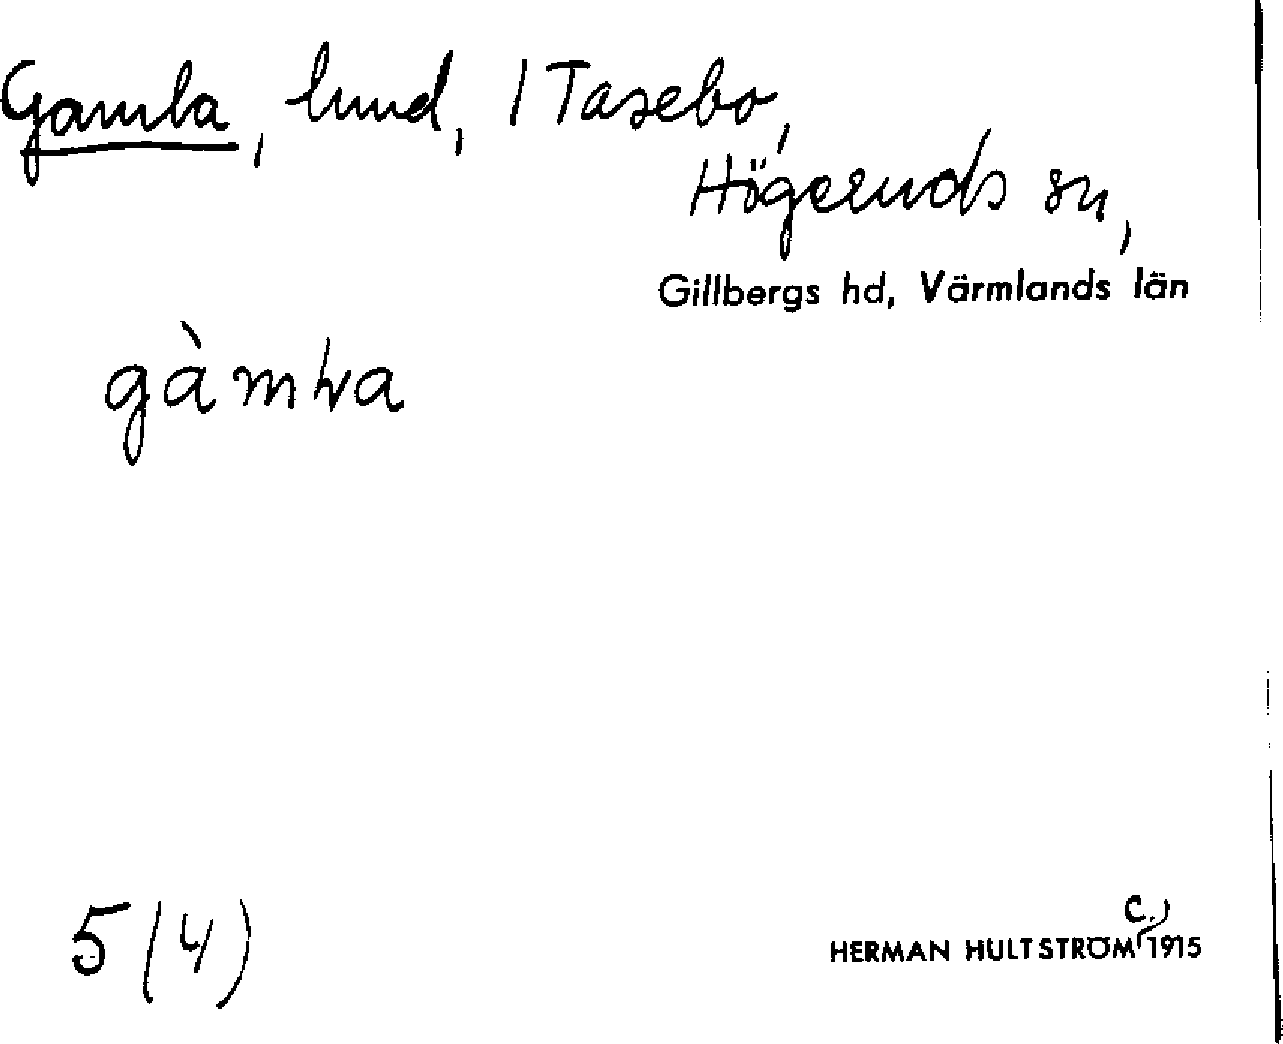 Gamla, lund, 1 Tasebo,
Högeruds sn,
Gillbergs hd, Värmlands län
5(4)
C.
HERMAN HULTSTRÖM 1915